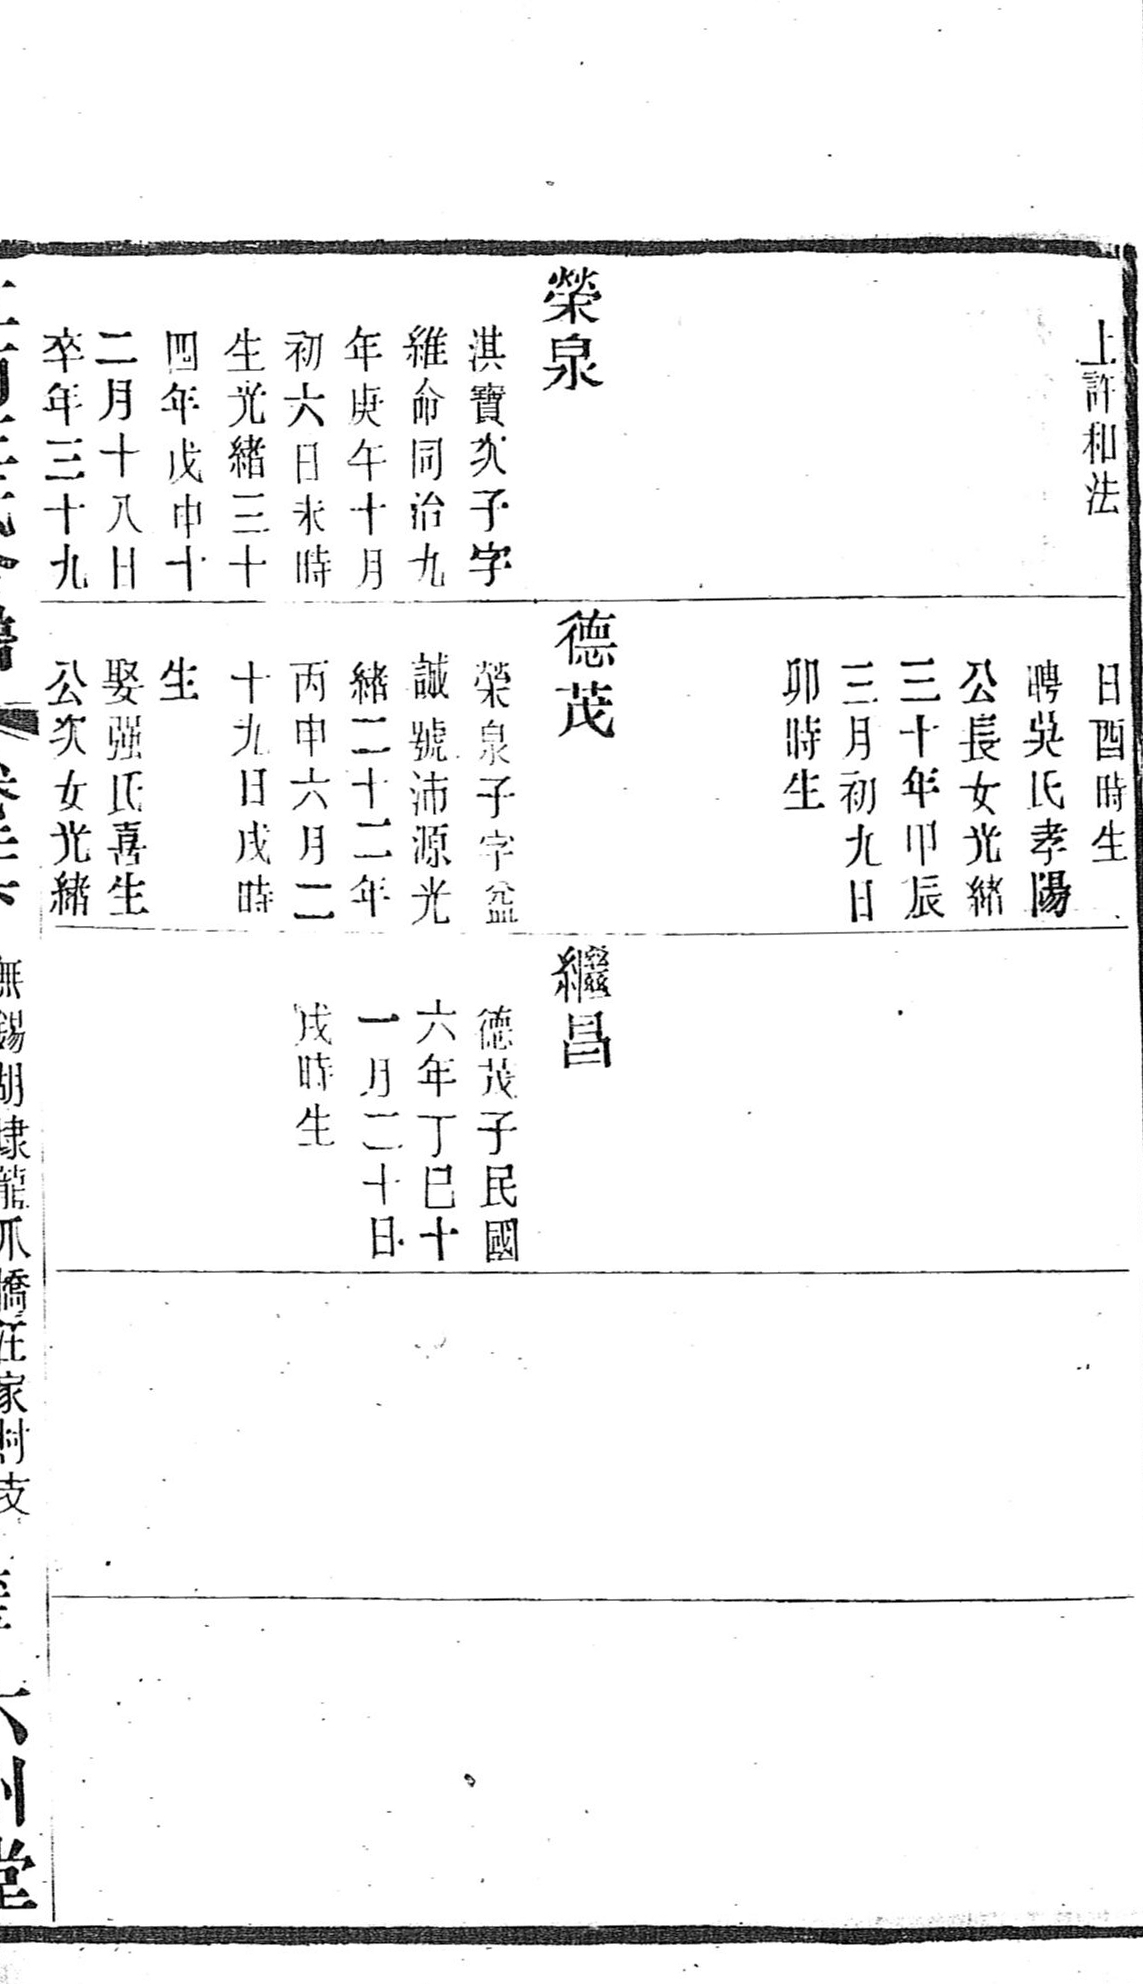 上許和法
榮泉
淇寶次子字
維命同治九
年庚午十月
初六日未時
生光緒三十
四年戊申十
二月十八日
卒年三十九
日酉時生
聘吳氏孝陽
公長女光緒
三十年甲辰
三月初九日
卯時生
德茂
榮泉子字益
誠號沛源光
緒二十二年
丙申六月二
十九日戌時
生
娶强氏喜生
公次女光緒
繼昌
德茂子民國
六年丁巳十
一月二十日
戌時生
無錫湖埭龍爪橋汪家村支
六州堂